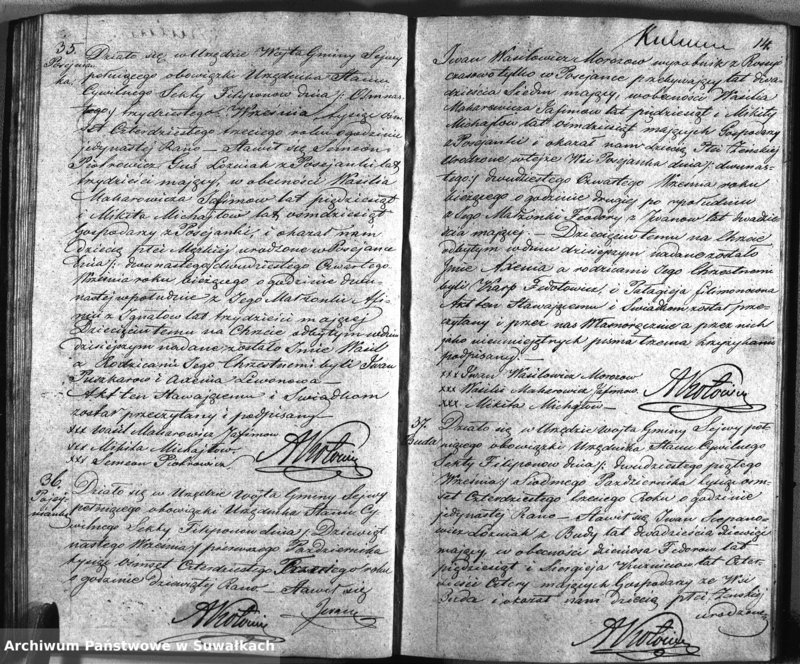 35.
Posejanka.
Działo się w Urzędzie Wójta Gminy Sejwy
pełniącego obowiązki Urzędnika Stanu
Cywilnego Sekty Filiponów dnia /: Osmna-
stego / trzydziestego / Września tysiąc ośm-
set Czterdziestego trzeciego roku o godzinie
jedynastej Rano – Stawił się Semeon
Piotrowicz Guś Łoźniak z Posejanki lat
trzydzieści mający, w obecności Wasilia
Makarowicza Jafimow lat pięćdziesiąt
i Mikita Michajłow lat ośmdziesiąt
Gospodarzy z Posejanki, i okazał nam
dziecię płci Męskiej urodzone w Posejance
dnia /: dwunastego / dwudziestego Czwartego
Września roku bieżącego o godzinie dwu-
nastej w południe z Jego Małżonki
z Ignatow lat trzydzieści mającej
Dziecięciu temu na Chrzcie odbytym w dniu
dzisiejszym nadane zostało Imie Wasil
a Rodzicami Jego Chrzestnemi byli Iwan
Puszkarow i Axenia Lewonowa –
Akt ten Stawającemu i Swiadkom
został przeczytany i podpisany
xxx Wasil Makarowicz Jafimow
xxx Mikita Michajłow
xxx Semeon Piotrowicz
36.
Posejanka
Działo się w Urzędzie Wójta Gminy Sejwy
pełniącego obowiązki Urzędnika Stanu Cy-
wilnego Sekty Filiponów dnia /: Dziewięt-
nastego Września / pierwszego Października
tysiąc ośmset Czterdziestego Trzeciego roku
o godzinie dziewiątej Rano – Stawił się
Iwan
14.
Iwan Wasilowicz Morozow wyrobnik z Rossyi
czasowo tylko w Posejance przebywający lat dwa-
dzieścia Siedm mający, w obecności Wasilia
Makarowicza Jafimow lat pięćdziesiąt i Mikity
Michajłow lat ośmdziesiąt mających Gospodarzy
z Posejanki i okazał nam dziecię płci Żeńskiej
urodzone w tejże Wsi Posejanka dnia /: dwunas-
tego / dwudziestego Czwartego Września roku
bieżącego o godzinie drugiej po południu
z Jego Małżonki Feodory z Iwanow lat dwadzie-
ścia mającej. – Dziecięciu temu na Chrzcie
odbytym w dniu dzisiejszym nadane zostało
Imie Axenia a rodzicami Jego Chrzestnemi
byli Karp Fedotowicz i Pałagieja Filimonowna
Akt ten Stawającemu i Swiadkom został prze-
czytany i przez nas Własnoręcznie a przez nich
jako nieumiejętnych pisma trzema krzyżykami
podpisany. –
xxx Iwan Wasilowicz Morozow
xxx Wasilii Makarowicz Jafimow
xxx Mikita Michajłow –
37.
Buda
Działo się w Urzędzie Wójta Gminy Sejwy peł-
niącego obowiązki Urzędnika Stanu Cywilnego
Sekty Filiponów dnia /: dwudziestego piątego
Września / Siódmego Października tysiąc ośm-
set Czterdziestego trzeciego Roku o godzinie
jedynastej Rano – Stawił się Iwan
Łoźniak z Budy lat dwadzieścia dziewięć
mający w obecności Fedorow lat
pięćdziesiąt i Siergieja lat Czter-
dzieści Cztery mających Gospodarzy ze Wsi
Buda i okazał nam dziecię płci Żeńskiej
urodzone
Archiwum Państwowe w Suwałkach